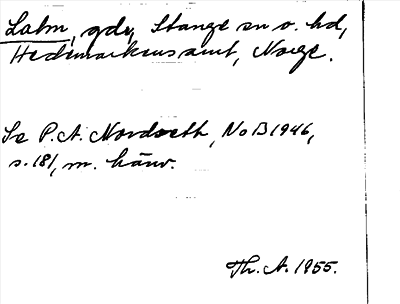 Lalm, gdr, Stange sn o. hd,
Hedemarkens amt, Norge.
Se P. A. Nordseth, NoB 1946,
s. 181, m. hänv.
Th. A. 1955.